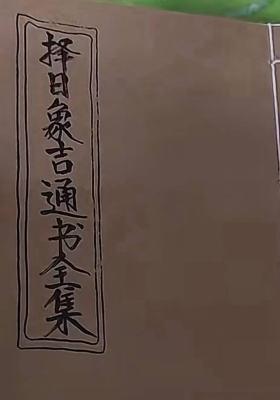 择日象吉通书全集